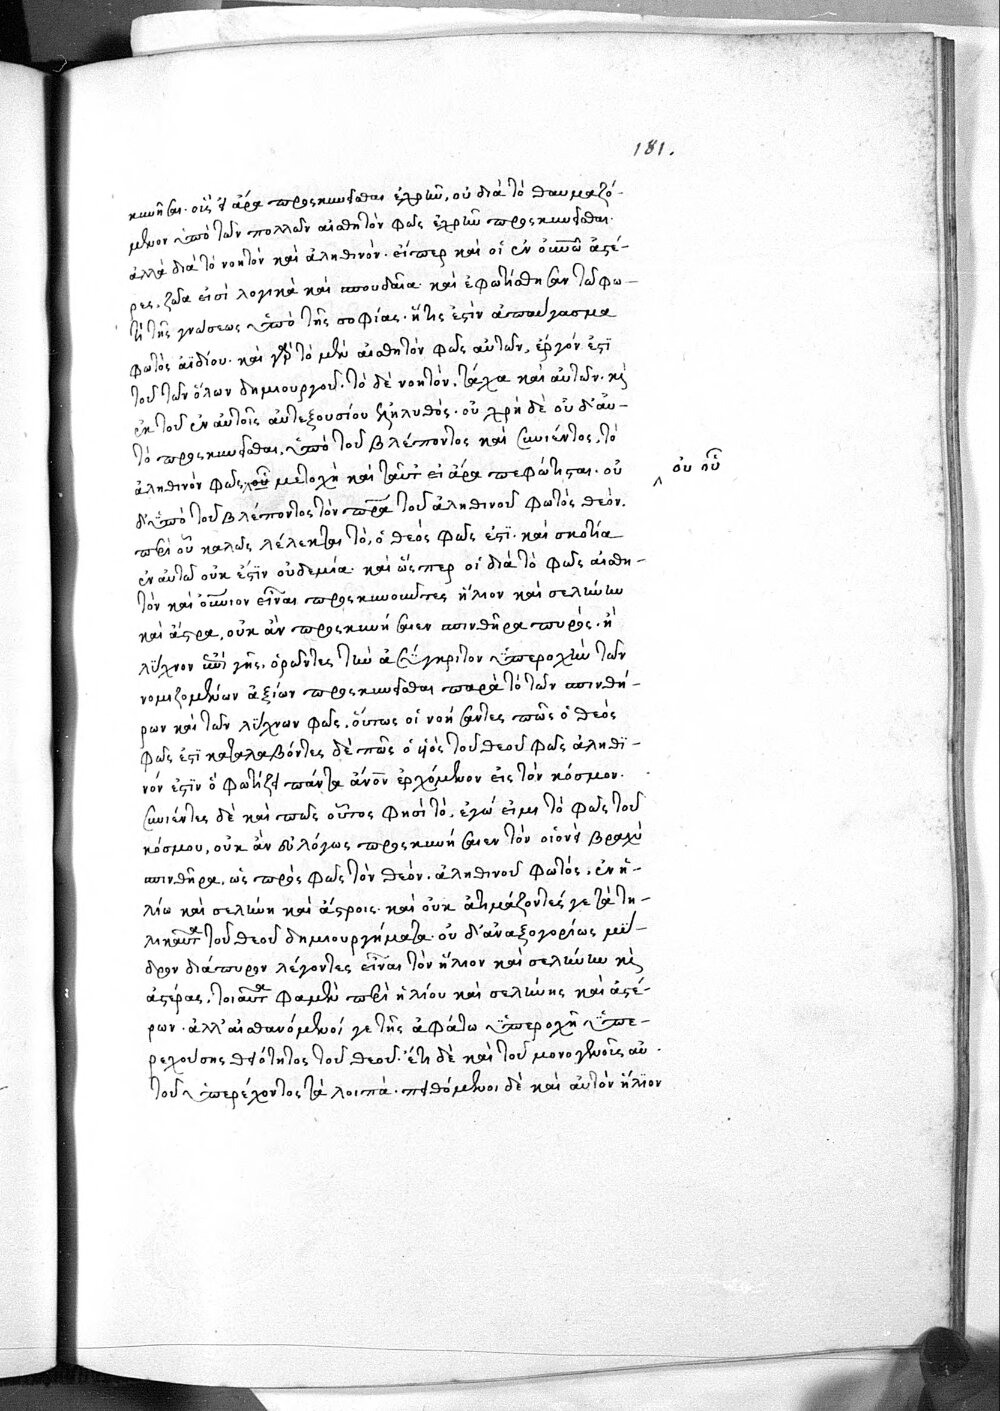 181.
κυνῆσαι. οἷς γ' ἄρα προσκυνεῖσθαι ἐχρῆν, οὐ διὰ τὸ θαυμαζό-
μενον ὑπὸ τῶν πολλῶν αἰσθητὸν φῶς ἐχρῆν προσκυνεῖσθαι.
ἀλλὰ διὰ τὸ νοητὸν καὶ ἀληθινόν. εἴπερ καὶ οἱ ἐν οὐνῶ ἀστέ-
ρες, ζῶα εἰσὶ λογικὰ καὶ σπουδαῖα. καὶ ἐφωτίσθησαν τῶ φω-
τὶ τῆς γνώσεως ὑπὸ τῆς σοφίας. ἥτις ἐστὶν ἀπαύγασμα
φωτὸς ἀϊδίου. καὶ γὰρ τὸ μὲν αἰσθητὸν φῶς αὐτῶν, ἔργόν ἐστι
τοῦ τῶν ὅλων δημιουργοῦ. τὸ δὲ νοητὸν, τάχα καὶ αὐτῶν. κὶ
ἐκ τοῦ ἐν αὐτοῖς αὐτεξουσίου ἐληλυθός. οὐ χρὴ δὲ οὐδ' αὐ-
τὸ προσκυνεῖσθαι, ὑπὸ τοῦ βλέποντος καὶ συνιέντος, τὸ
ἀληθινὸν φῶς, οὗ μετοχῆ καὶ ταῦτ' εἰ ἄρα πεφώτισται. οὐ
οὐ οὗ
δ' ὑπὸ τοῦ βλέποντος τὸν πρα τοῦ ἀληθινοῦ φωτὸς θεὸν.
περὶ οὗ καλῶς λέλεκται τὸ, ὁ θεὸς φῶς ἐστι. καὶ σκοτία
ἐν αὐτῶ οὐκ ἔστιν οὐδεμία. καὶ ὥσπερ οἱ διὰ τὸ φῶς αἰσθη-
τὸν καὶ οὐνιον εἶναι προσκυνοῦντες ἥλιον καὶ σελήνην
καὶ ἄστρα, οὐκ ἂν προσκυνήσαιεν σπινθῆρα πυρός. ἢ
λύχνον ἐπὶ γῆς, ὁρῶντες τὴν ἀσύγκριτον ὑπεροχὴν τῶν
νομιζομένων ἀξίων προσκυνεῖσθαι παρὰ τὸ τῶν σπινθή-
ρων καὶ τῶν λύχνων φῶς, οὕτως οἱ νοήσαντες πῶς ὁ θεὸς
φῶς ἐστι καταλαβόντες δὲ πῶς ὁ υἱὸς τοῦ θεοῦ φῶς ἀληθι-
νόν ἐστιν ὃ φωτίζει πάντα ἄνον ἐρχόμενον εἰς τὸν κόσμον.
συνιέντες δὲ καὶ πῶς οὗτος φησὶ τὸ, ἐγώ εἰμι τὸ φῶς τοῦ
κόσμου, οὐκ ἂν εὐλόγως προσκυνήσαιεν τὸν οἱονεὶ βραχὺ
σπινθῆρα, ὡς πρὸς φῶς τὸν θεὸν, ἀληθινοῦ φωτός, ἐν ἡ-
λίω καὶ σελήνη καὶ ἄστροις. καὶ οὐκ ἀτιμάζοντές γε τὰ τη-
λικαῦτα τοῦ θεοῦ δημιουργήματα. οὐ δ' ἀναξογορίως μύ-
δρον διάπυρον λέγοντες εἶναι τὸν ἥλιον καὶ σελήνην κὶ
ἀστέρας, τοιαῦτα φαμὲν περὶ ἡλίου καὶ σελήνης καὶ ἀστέ-
ρων. ἀλλ' αἰσθανόμενοί γε τῆς ἀφάτω ὑπεροχῆ ὑπε-
ρεχούσης θειότητος τοῦ θεοῦ. ἔτι δὲ καὶ τοῦ μονογενοῦς αὐ
τοῦ ὑπερέχοντος τὰ λοιπά. πειθόμενοι δὲ καὶ αὐτὸν ἥλιον